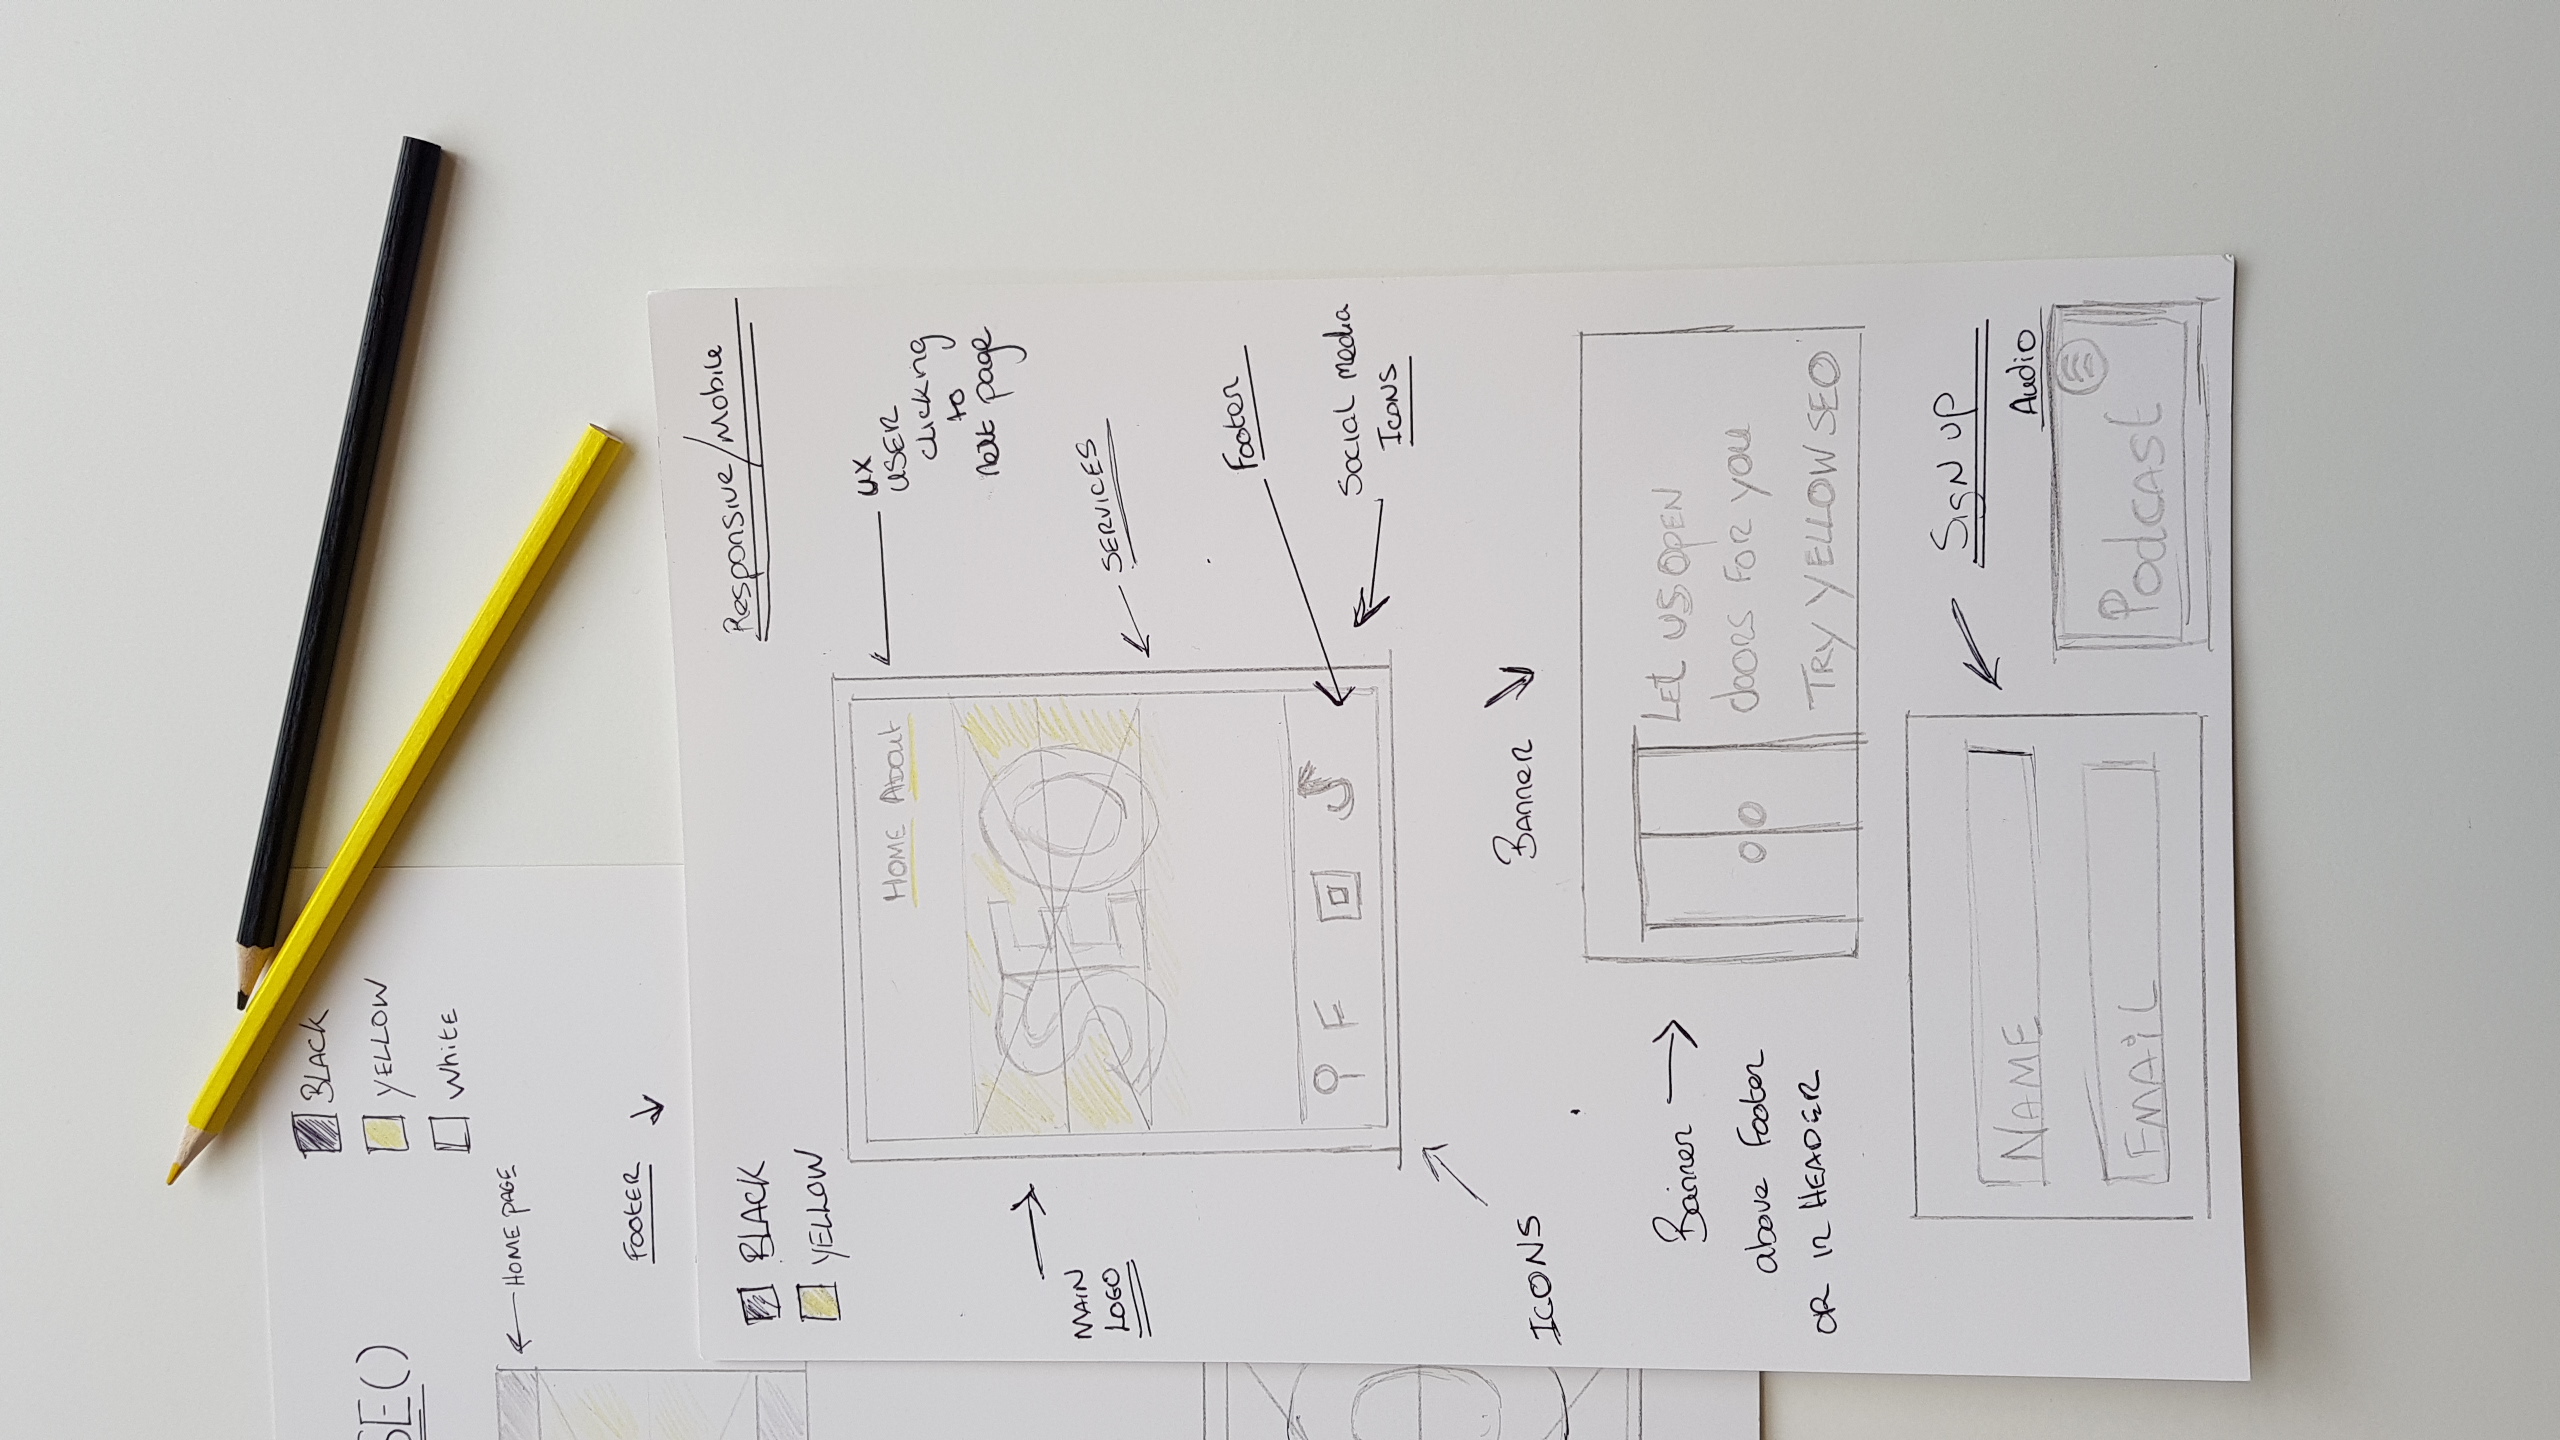 BLACK
YELLOW
WhitE
SE()
HOME PAGE
FOOtER
Responsive/Mobile
BLACK
YELLOW
HOME About
UX
USER
clicking
to
next page
SEO
MAIN
LOGO
SERVICES
Footer
F
Social media
ICONS
ICONS
Banner
Banner
above Footer
OR in HEADER
LEt US OPEN
doors FOR you
TRY YELLOW SEO
SigN UP
NAME
EMAiL
Audio
Podcast